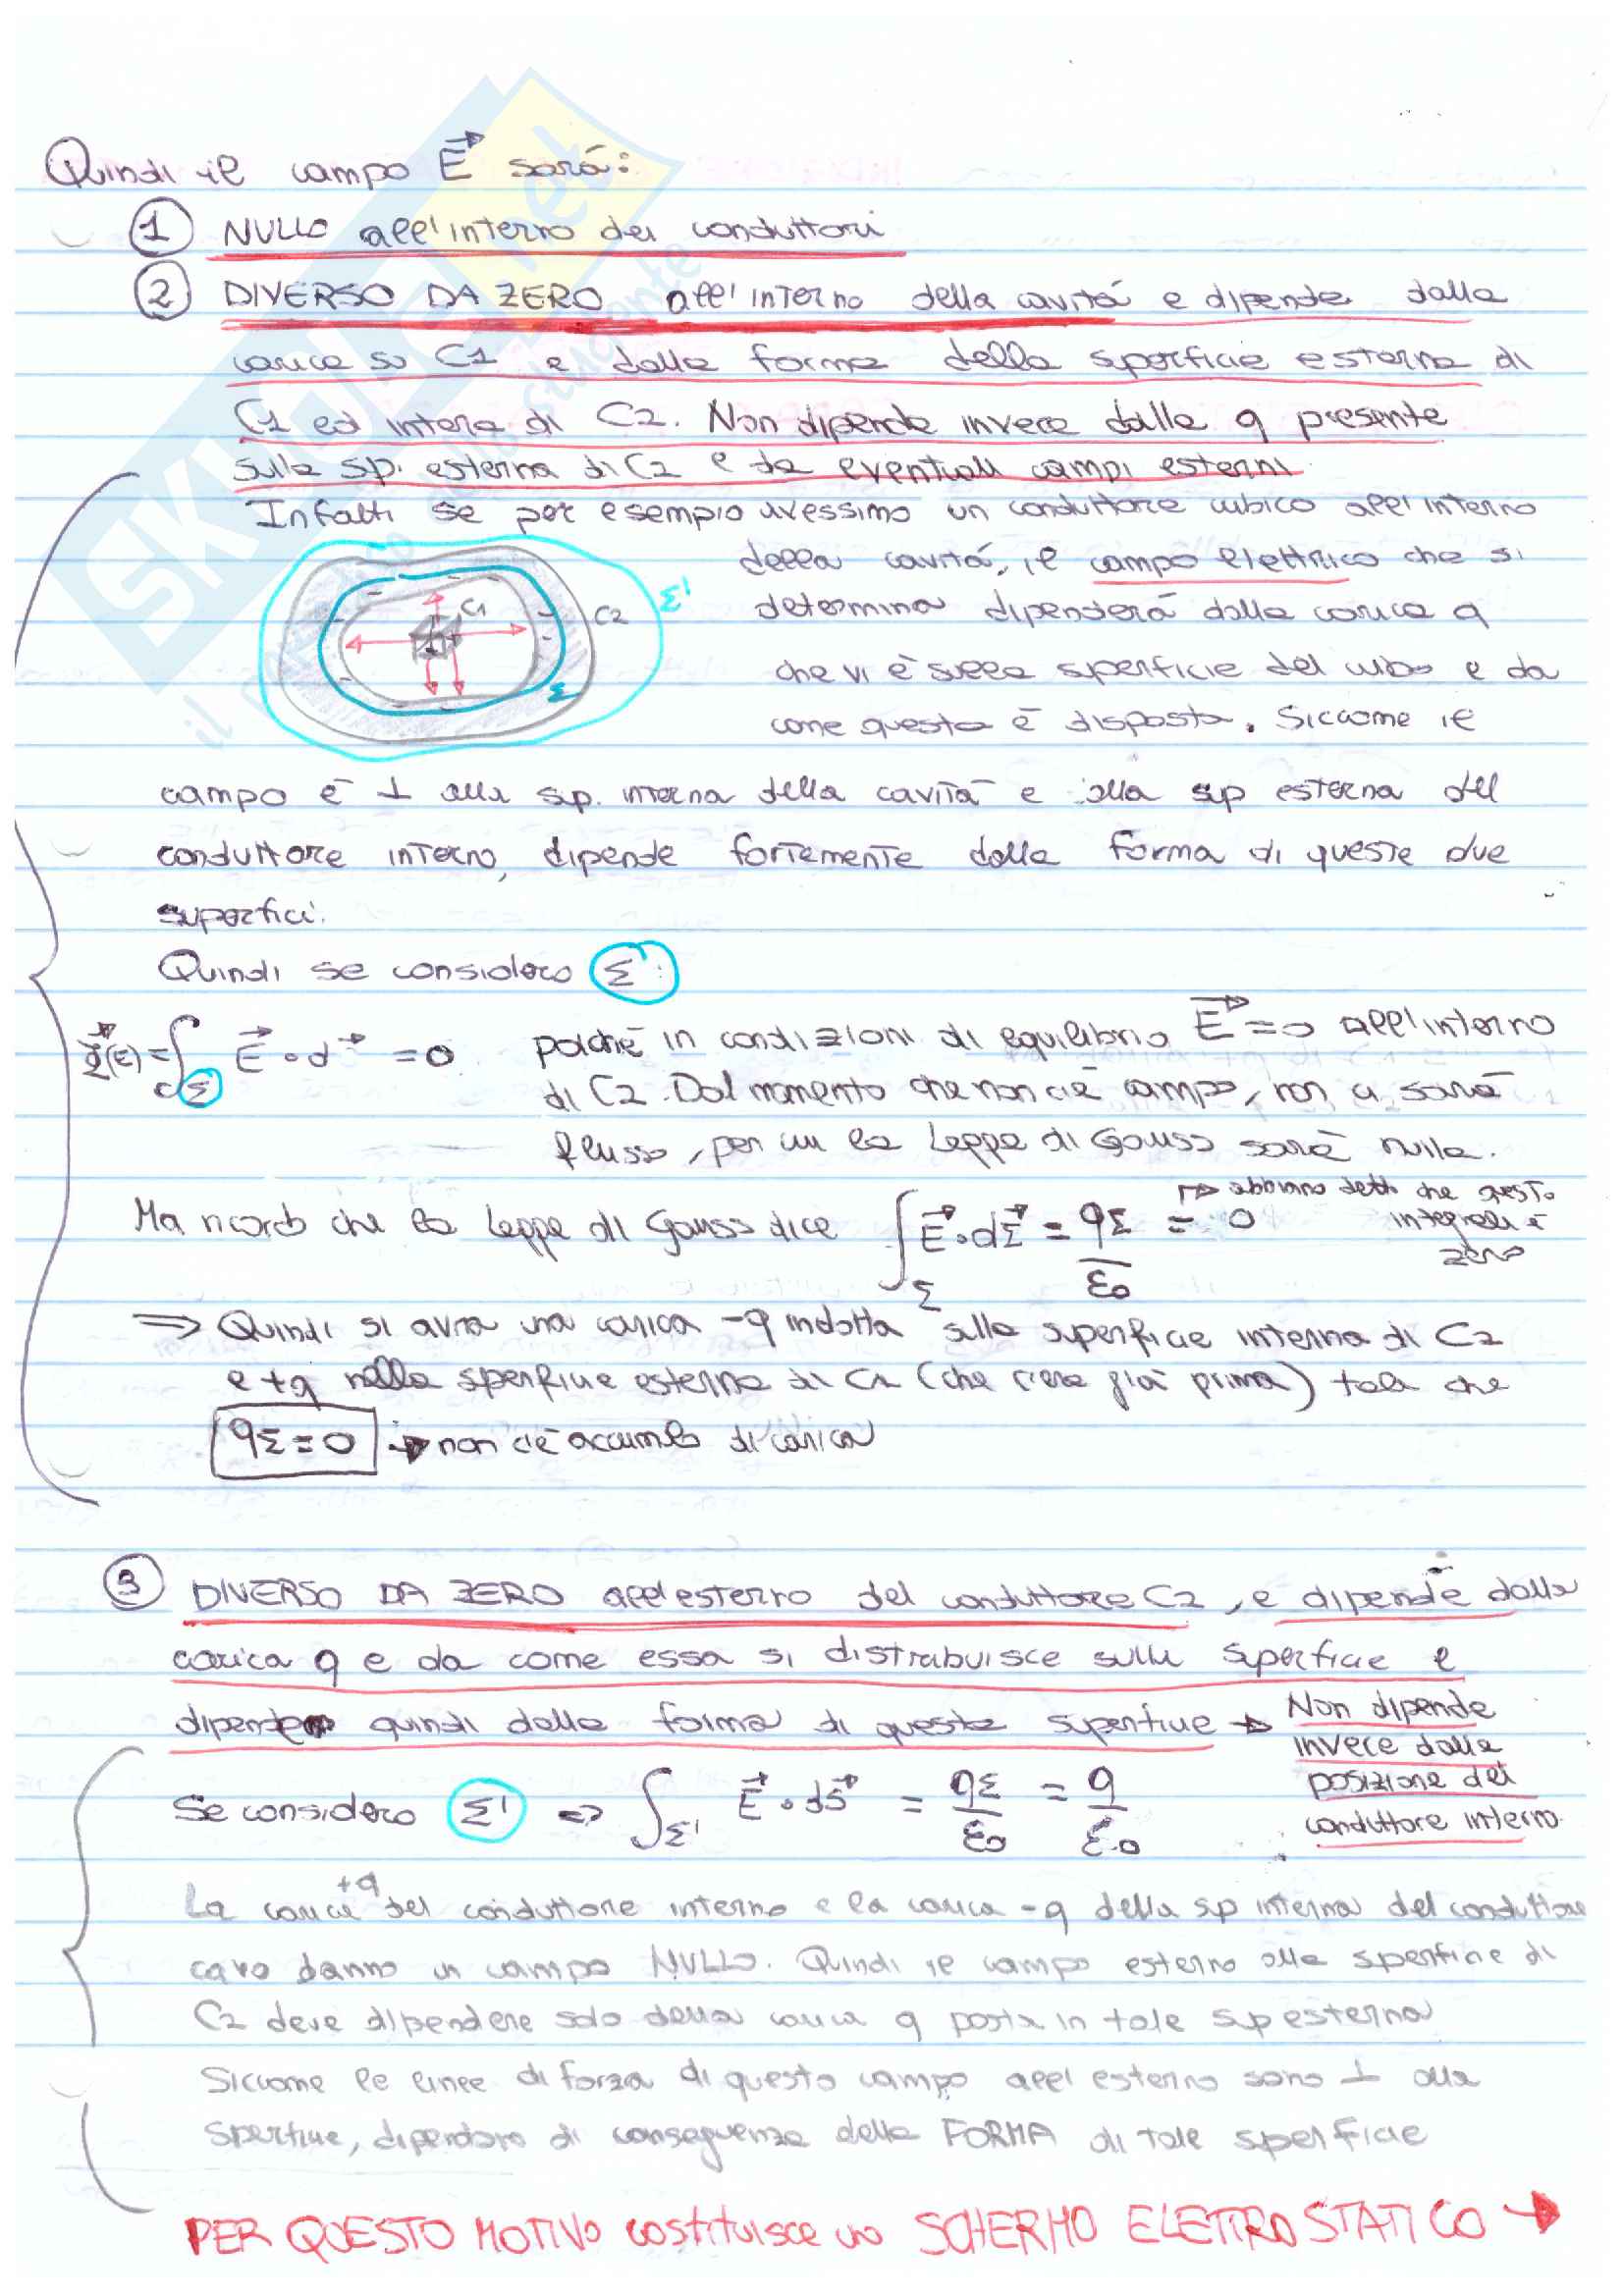 Quindi il campo E⃗ sará:
① NULLO all'interno dei conduttori
② DIVERSO DA ZERO all'interno della cavitá e dipende dalla
carica su C1 e dalla forma della superficie esterna di
C1 ed interna di C2. Non dipende invece dalla q presente
sulla sp. esterna di C2 e da eventuali campi esterni
Infatti se per esempio avessimo un conduttore cubico all'interno
della cavitá, il campo elettrico che si
determina dipenderá dalla carica q
che vi è sulla superficie del cubo e da
come questa è disposta. Siccome il
C1
C2
Σ'
Σ
campo è ⊥ alla sup. interna della cavità e alla sup esterna del
conduttore interno, dipende fortemente dalla forma di queste due
superfici.
Quindi se considero Σ:
Φ(E) = ∫Σ E⃗ • d⃗ = 0 poichè in condizioni di equilibrio E⃗ = 0 all'interno
di C2. Dal momento che non c'è campo, non ci sarà
flusso, per cui la Legge di Gauss sarà nulla.
Ma ricordo che la Legge di Gauss dice ∫Σ E⃗ • dΣ⃗ = qΣ/ε0 = 0 → abbiamo detto che questo
integrale è
zero
⇒ Quindi si avrà una carica -q indotta sulla superficie interna di C2
e +q nella superficie esterna di C1 (che c'era già prima) tale che
qΣ = 0 → non c'è accumulo di carica
③ DIVERSO DA ZERO all'esterno del conduttore C2, e dipende dalla
carica q e da come essa si distribuisce sulla superficie e
dipende quindi dalla forma di questa superficie → Non dipende
invece dalla
posizione del
conduttore interno.
Se considero Σ' ⇒ ∫Σ' E⃗ • dS⃗ = qΣ/ε0 = q/ε0
La carica +q del conduttore interno e la carica -q della sp interna del conduttore
cavo danno un campo NULLO. Quindi il campo esterno alla superficie di
C2 deve dipendere solo della carica q posta in tale sup esterna
Siccome le linee di forza di questo campo all'esterno sono ⊥ alla
superficie, dipendono di conseguenza della FORMA di tale superficie
PER QUESTO MOTIVO costituisce uno SCHERMO ELETTROSTATICO →
SKUOLA.net